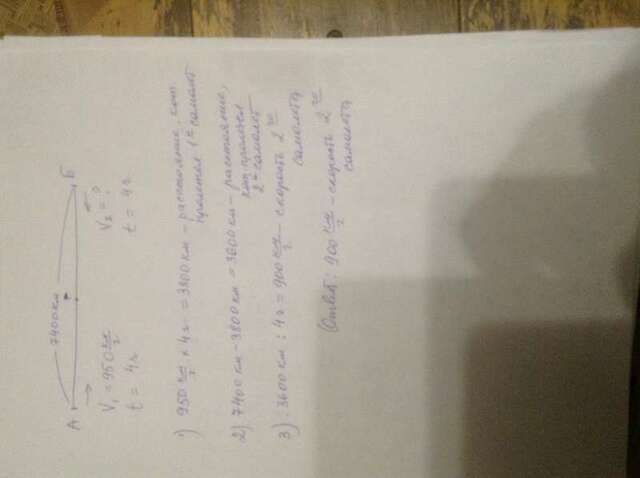 7400 км
А Б
V₁ = 950 км/ч V₂ = ?
t = 4ч t = 4ч
1) 950 км/ч × 4ч = 3800 км – расстояние, кот.
пролетел 1й самолёт
2) 7400 км – 3800 км = 3600 км – расстояние,
кот. пролетел
2й самолёт
3) 3600 км : 4ч = 900 км/ч – скорость 2го
самолёта
Ответ: 900 км/ч – скорость 2го
самолёта